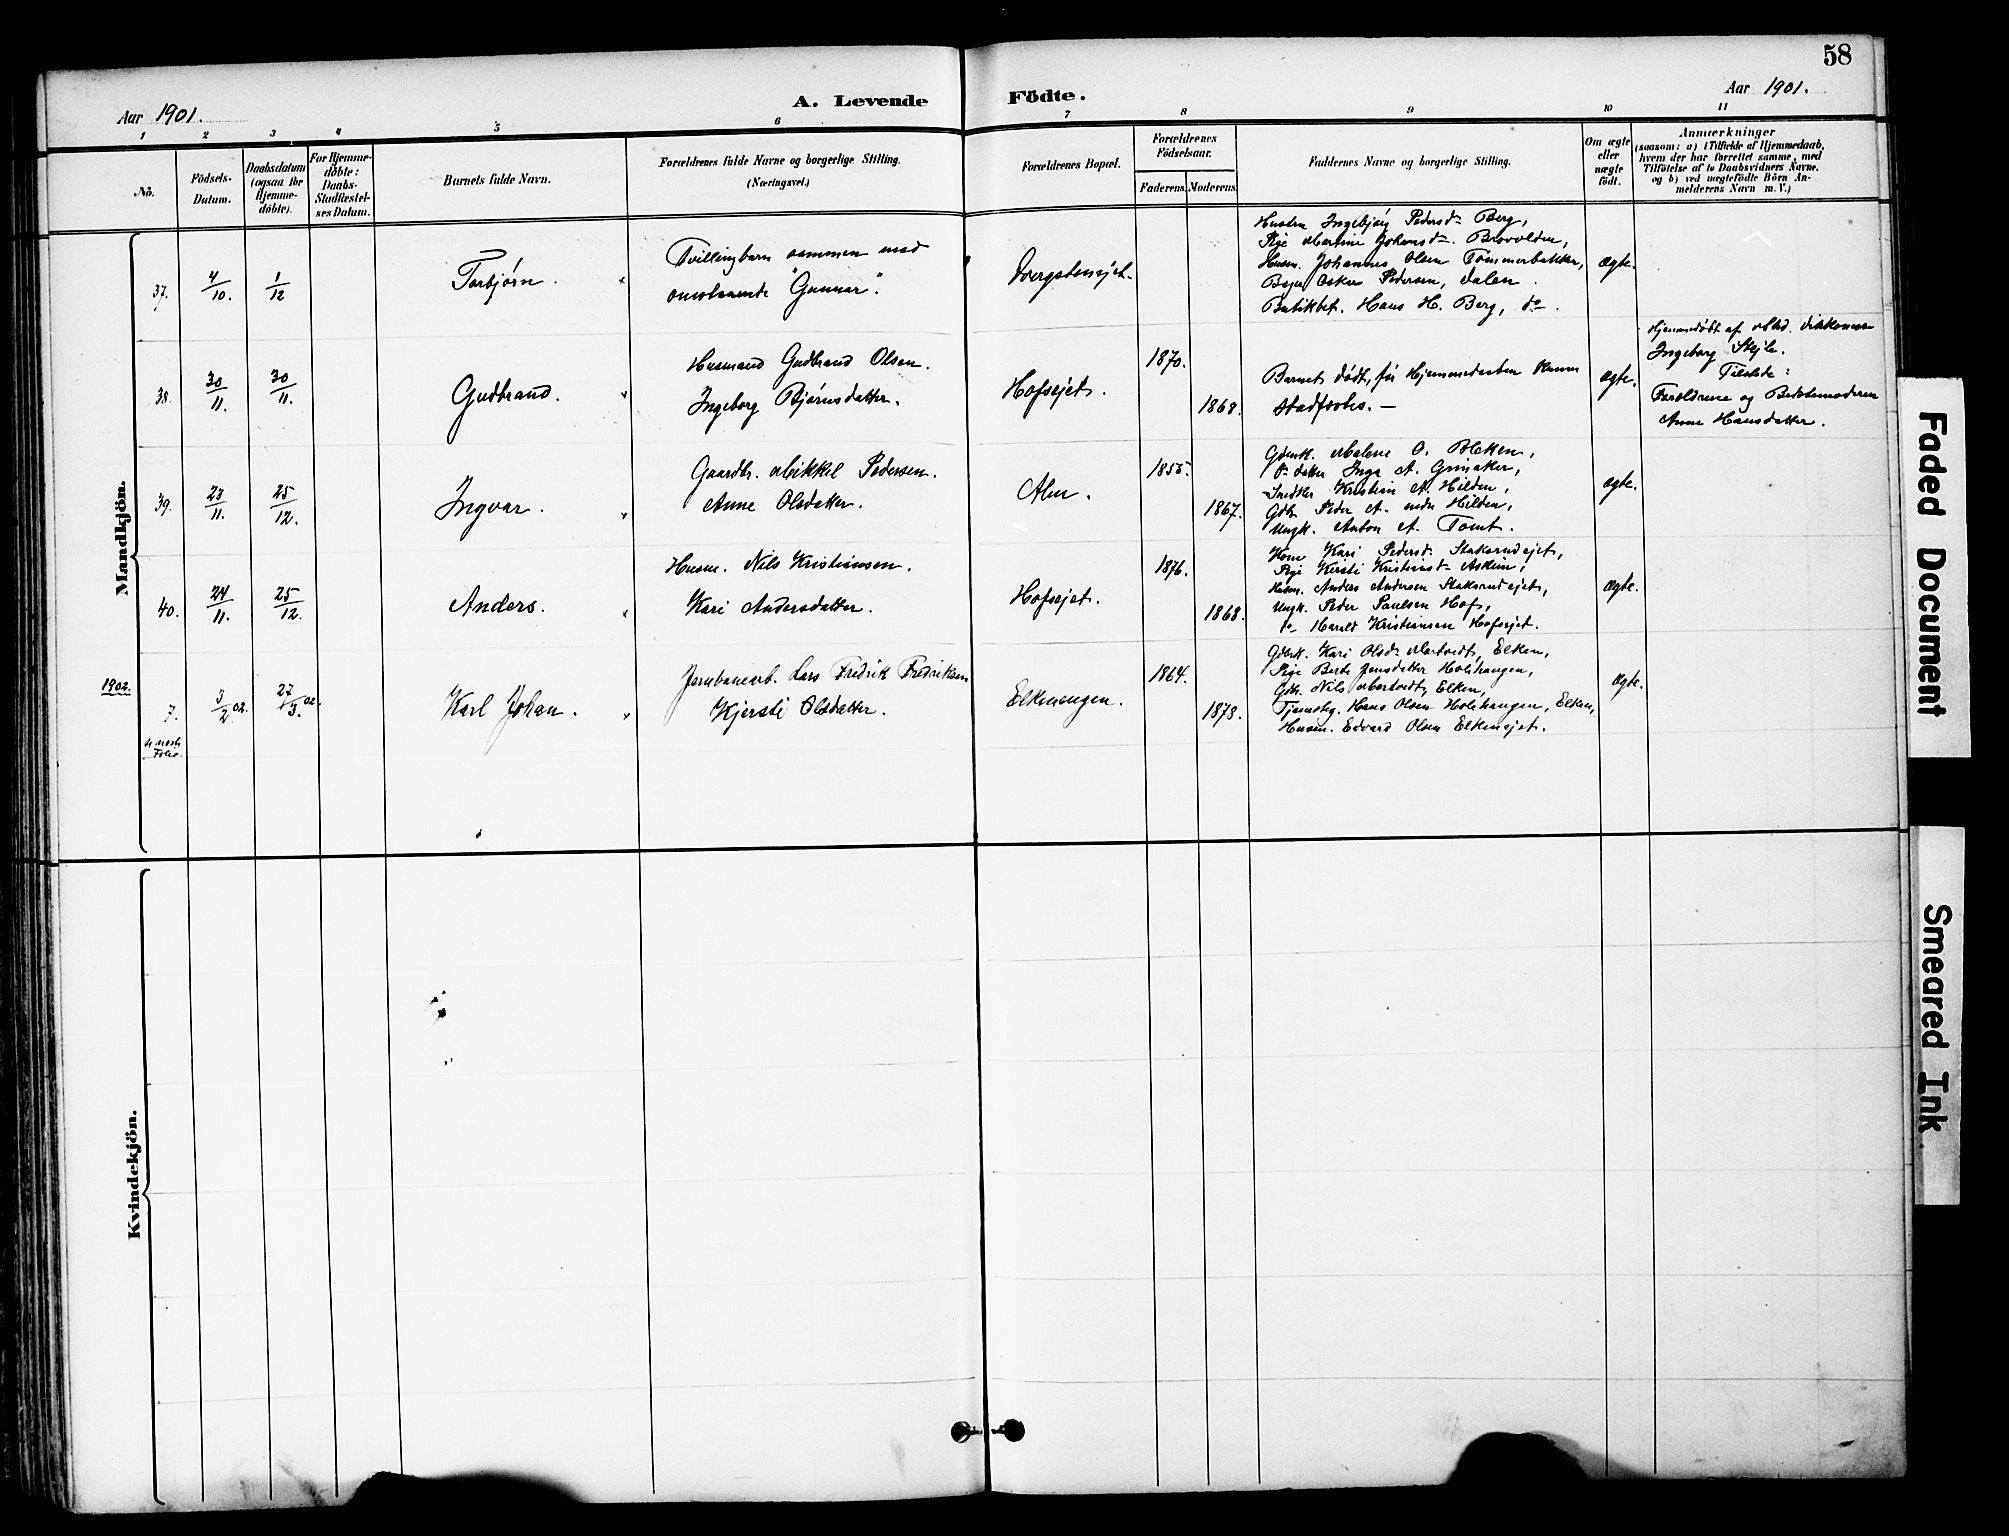 58
Aar 1901.
A. Levende Födte.
Aar 1901.
1 2 3 4 5 6 7 8 9 10 11
No.
Födsels-Datum.
Daabsdatum (ogsaa for Hjemme-döbte).
For Hjemme-döbte: Daabs-Stadfæstel-ses Datum.
Barnets fulde Navn.
Forældrenes fulde Navne og borgerlige Stilling.
(Næringsvei.)
Forældrenes Bopæl.
Forældrenes Födselsaar.
Faderens. Moderens.
Faddernes Navne og borgerlige Stilling.
Om ægte eller uægte födt.
Anmærkninger
(saasom: a) i Tilfælde af Hjemmedaab,
hvem der har forrettet samme, med
Tilföielse af to Daabsvidners Navne,
og b) ved uægtefödte Börn An-
melderens Navn m. V.)
Mandkjön.
37. 4/10. 1/12 Torbjørn.
Tvillingbarn sammen med
omstaaende "Gunnar".
Dvergstenejet.
Hustru Ingebjørg Pedersd. Berg,
Pige Martine Johansd.
Husm. Johannes Olsen Tømmerbakken,
Oskar Pedersen, Dalen.
Hans H. Berg, do.
Ægte.
38. 30/11. 30/11. Gudbrand.
Husmand Gudbrand Olsen.
Ingeborg Bjørnsdatter.
Hofsejet.
1870.
1868.
Barnet dødt, før Hjemmedaaben kunne
stadfæstes. —
Ægte.
Hjemmedøbt af
Ingeborg
Tilstede:
Forældrene og Bedstemoderen
Anne Hansdatter.
39. 23/11. 25/12. Ingvar.
Gaardbr. Mikkel Pedersen.
Anne Olsdatter.
Alm.
1855
1867.
Malene O. Bleken,
datter Inga A. Grinaker,
Kristian A. Hilden,
Gdbr. Peder A. nedre Hilden,
Ungk. Anton A. Tomt.
Ægte.
40. 24/11. 25/12. Anders.
Husm. Nils Kristiansen.
Kari Andersdatter.
Hofsejet.
1876.
1868.
Kone Kari Pedersd. Staksrudejet,
Pige Kersti Kristiansd. Askim,
Husm. Anders Andersen Staksrudejet,
Ungk. Peder Paulsen Hof,
do Harald Kristiansen Hofsejet.
Ægte.
1902.
7. 3/2 02. 27/3. 02. Karl Johan.
se næste
Folio.
Jernbanearb. Lars Fredrik Fredriksen
Kjersti Olsdatter.
Elkenengen.
1864.
1878.
Kari Olsd. Elken,
Pige Berte Jensdatter Holihaugen,
Gdb. Nils Elken,
Tjenesteg. Hans Olsen Holihaugen, Elken,
Husm. Edvard Olsen Elkenejet.
Ægte.
Kvindekjön.
Faded Document
Smeared Ink